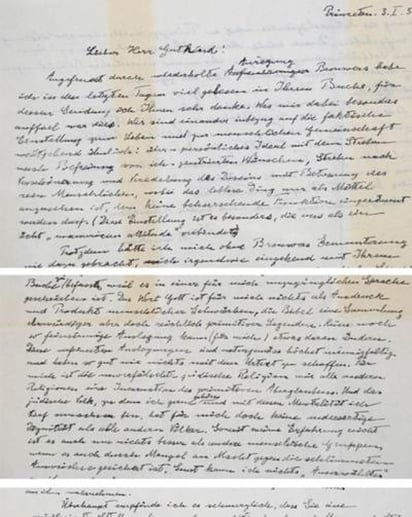 Princeton. 3. I. 5
Lieber Herr Gutkind!
Anregung
Angefeuert durch wiederholte Brouwers habe
ich in den letzten Tagen viel gelesen in Ihrem Buche, für
dessen Sendung ich Ihnen sehr danke. Was mir dabei besonders
auffiel war dies. Wir sind einander inbezug auf die faktische
Einstellung zum Leben und zur menschlichen Gemeinschaft
weitgehend ähnlich: über-persönliches Ideal mit dem Streben
nach Befreiung von ich-zentrierten Wünschen, Streben nach
Verschönerung und Veredelung des Daseins mit Betonung des
rein Menschlichen, wobei das leblose Ding nur als Mittel
anzusehen ist, dem keine beherrschende Funktion eingeräumt
werden darf. (Diese Einstellung ist es besonders, die uns als ein
echt "unamerican attitude" verbindet)
Trotzdem hätte ich mich ohne Brouwers Ermunterung
nie dazu gebracht, mich irgendwie eingehend mit Ihrem
Buche zu befassen, weil es in einer für mich unzugänglichen Sprache
geschrieben ist. Das Wort Gott ist für mich nichts als Ausdruck
und Produkt menschlicher Schwächen, die Bibel eine Sammlung
ehrwürdiger aber doch reichlich primitiver Legenden. Keine noch
so feinsinnige Auslegung kann (für mich) etwas daran ändern.
Diese verfeinerten Auslegungen sind naturgemäss höchst mannigfaltig
und haben so gut wie nichts mit dem Urtext zu schaffen. Für
mich ist die unverfälschte jüdische Religion wie alle anderen
Religionen eine Incarnation des primitiven Aberglaubens. Und das
jüdische Volk, zu dem ich gern gehöre und mit dessen Mentalität ich
tief verwachsen bin, hat für mich doch keine andersartige
Dignität als alle anderen Völker. Soweit meine Erfahrung reicht
ist es auch um nichts besser als andere menschliche Gruppen
wenn es auch durch Mangel an Macht gegen die schlimmsten
Auswüchse gesichert ist. Sonst kann ich nichts "Auserwähltes"
an ihm wahrnehmen.
Überhaupt empfinde ich es schmerzlich, dass Sie eine